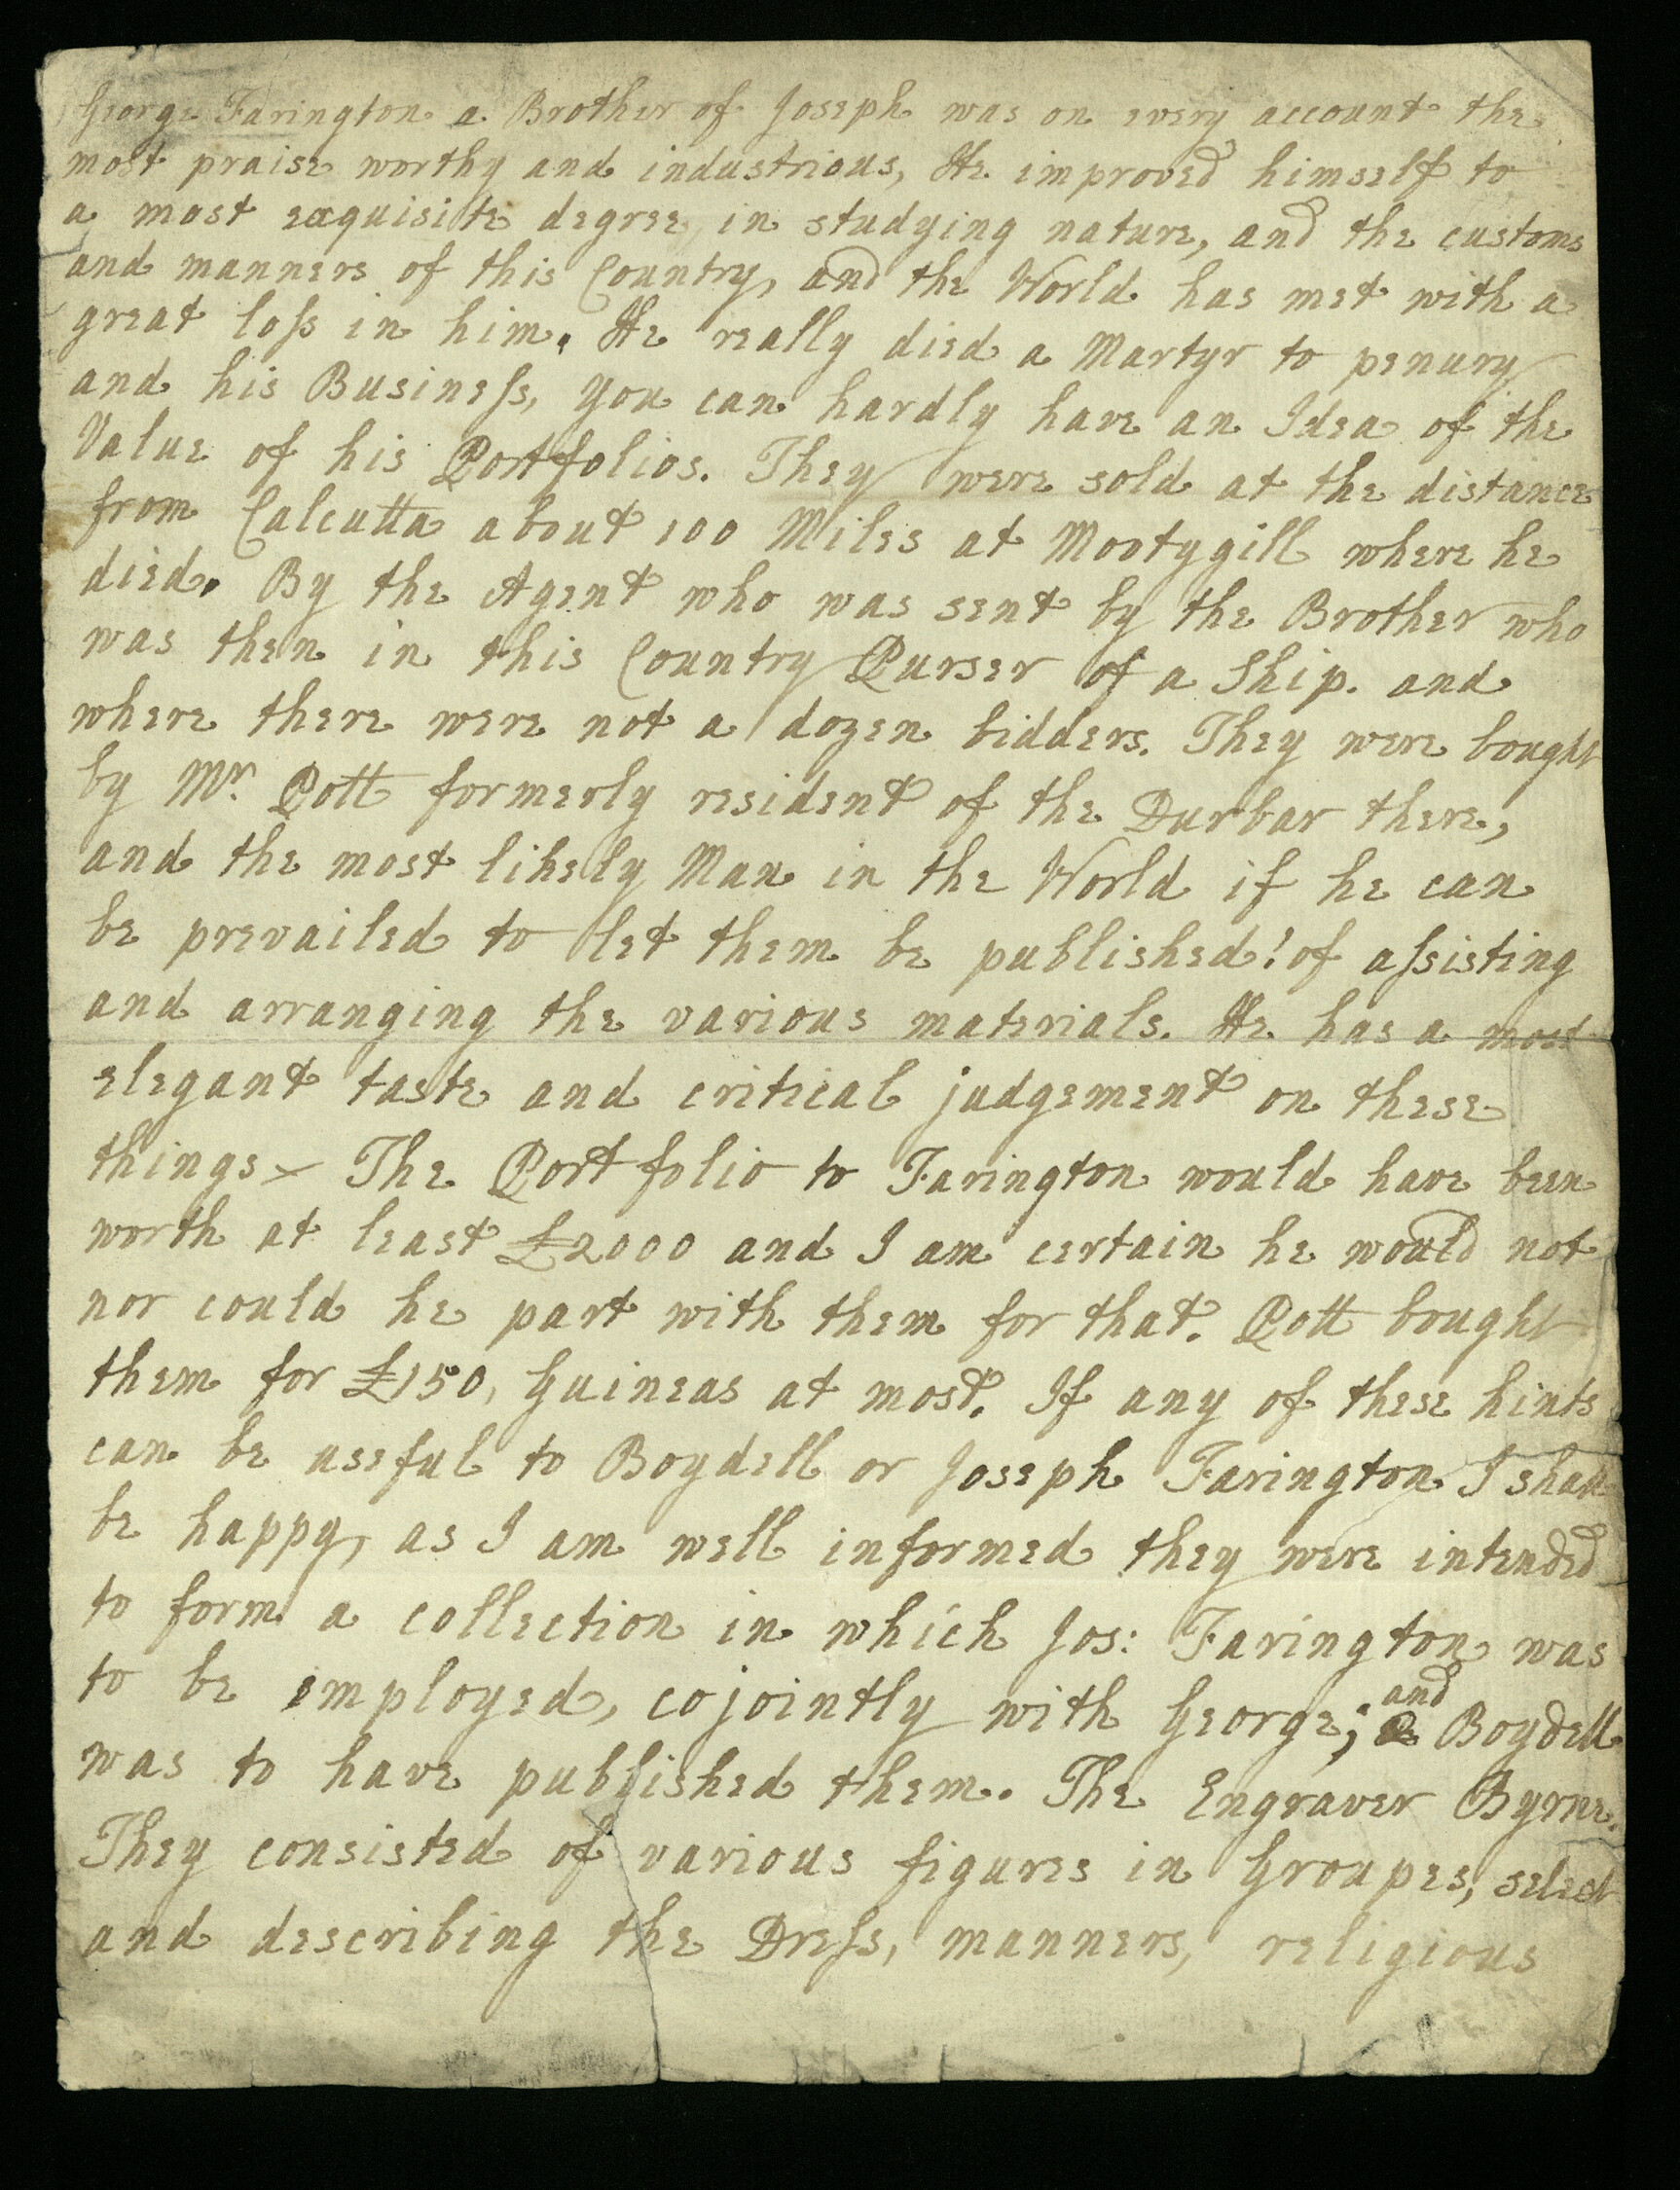 George Farington a Brother of Joseph was on every account the
most praise worthy and industrious, He improved himself to
a most exquisite degree in studying nature, and the customs
and manners of this Country, and the World has met with a
great loſs in him. He really died a Martyr to penury
and his Busineſs, you can hardly have an Idea of the
Value of his Portfolios. They were sold at the distance
from Calcutta about 100 Miles at Mootygill where he
died. By the Agent who was sent by the Brother who
was then in this Country Purser of a Ship. and
where there were not a dozen bidders. They were bought
by Mr. Pott formerly resident of the Durbar there,
and the most likely Man in the World if he can
be prevailed to let them be published! of aſsisting
and arranging the various materials. He has a most
elegant taste and critical judgement on these
things – The Portfolio to Farington would have been
worth at least £2000 and I am certain he would not
nor could he part with them for that. Pott bought
them for £150, Guineas at most. If any of these hints
can be useful to Boydell or Joseph Farington I shall
be happy, as I am well informed they were intended
to form a collection in which Jos: Farington was
to be employed, cojointly with George; and Boydell
was to have published them. The Engraver Byrne.
They consisted of various figures in Groupes, select
and describing the Dreſs, manners, religious